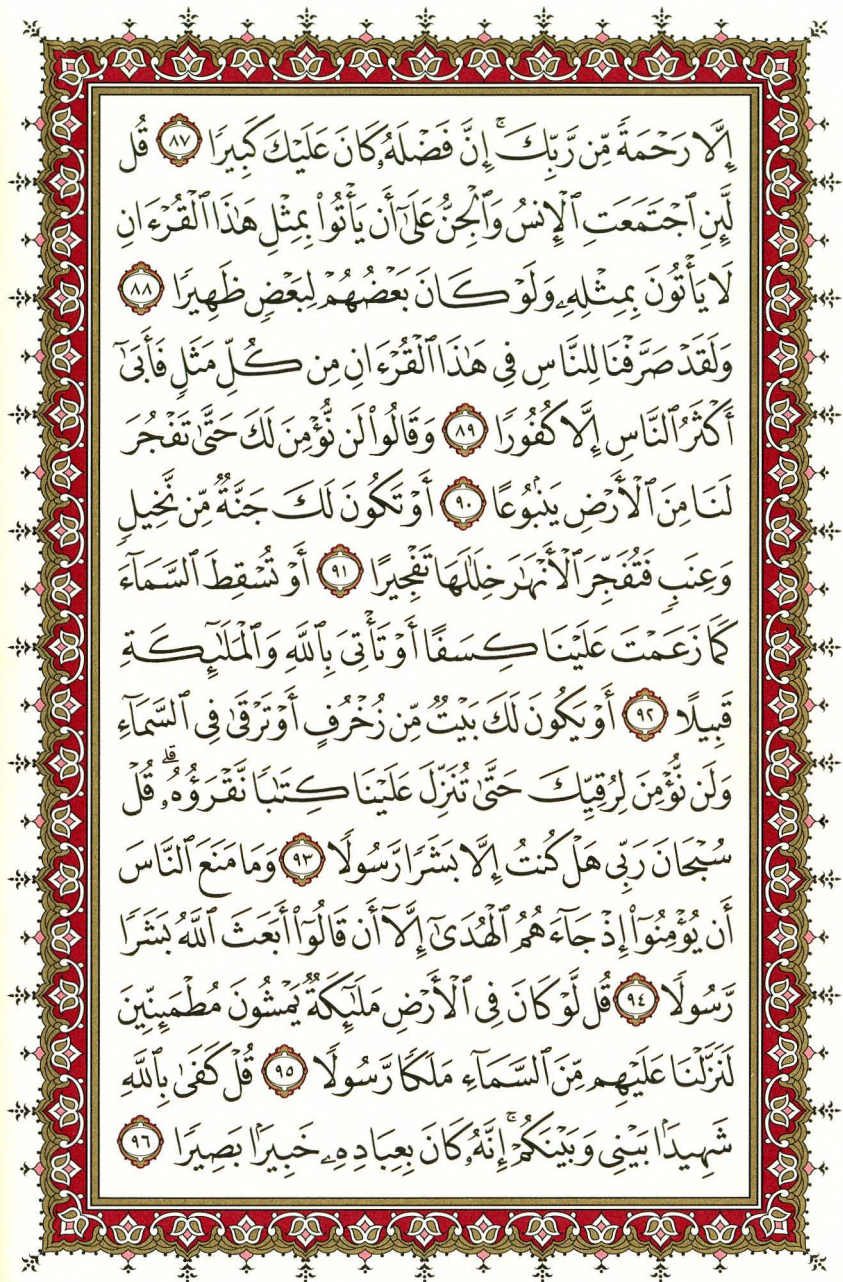 إِلَّا رَحْمَةً مِّن رَّبِّكَ ۚ إِنَّ فَضْلَهُۥ كَانَ عَلَيْكَ كَبِيرًا ٨٧ قُل
لَّئِنِ ٱجْتَمَعَتِ ٱلْإِنسُ وَٱلْجِنُّ عَلَىٰٓ أَن يَأْتُوا۟ بِمِثْلِ هَٰذَا ٱلْقُرْءَانِ
لَا يَأْتُونَ بِمِثْلِهِۦ وَلَوْ كَانَ بَعْضُهُمْ لِبَعْضٍ ظَهِيرًا ٨٨
وَلَقَدْ صَرَّفْنَا لِلنَّاسِ فِى هَٰذَا ٱلْقُرْءَانِ مِن كُلِّ مَثَلٍ فَأَبَىٰٓ
أَكْثَرُ ٱلنَّاسِ إِلَّا كُفُورًا ٨٩ وَقَالُوا۟ لَن نُّؤْمِنَ لَكَ حَتَّىٰ تَفْجُرَ
لَنَا مِنَ ٱلْأَرْضِ يَنۢبُوعًا ٩٠ أَوْ تَكُونَ لَكَ جَنَّةٌ مِّن نَّخِيلٍ
وَعِنَبٍ فَتُفَجِّرَ ٱلْأَنْهَٰرَ خِلَٰلَهَا تَفْجِيرًا ٩١ أَوْ تُسْقِطَ ٱلسَّمَآءَ
كَمَا زَعَمْتَ عَلَيْنَا كِسَفًا أَوْ تَأْتِىَ بِٱللَّهِ وَٱلْمَلَٰٓئِكَةِ
قَبِيلًا ٩٢ أَوْ يَكُونَ لَكَ بَيْتٌ مِّن زُخْرُفٍ أَوْ تَرْقَىٰ فِى ٱلسَّمَآءِ
وَلَن نُّؤْمِنَ لِرُقِيِّكَ حَتَّىٰ تُنَزِّلَ عَلَيْنَا كِتَٰبًا نَّقْرَؤُهُۥ ۗ قُلْ
سُبْحَانَ رَبِّى هَلْ كُنتُ إِلَّا بَشَرًا رَّسُولًا ٩٣ وَمَا مَنَعَ ٱلنَّاسَ
أَن يُؤْمِنُوٓا۟ إِذْ جَآءَهُمُ ٱلْهُدَىٰٓ إِلَّآ أَن قَالُوٓا۟ أَبَعَثَ ٱللَّهُ بَشَرًا
رَّسُولًا ٩٤ قُل لَّوْ كَانَ فِى ٱلْأَرْضِ مَلَٰٓئِكَةٌ يَمْشُونَ مُطْمَئِنِّينَ
لَنَزَّلْنَا عَلَيْهِم مِّنَ ٱلسَّمَآءِ مَلَكًا رَّسُولًا ٩٥ قُلْ كَفَىٰ بِٱللَّهِ
شَهِيدًۢا بَيْنِى وَبَيْنَكُمْ ۚ إِنَّهُۥ كَانَ بِعِبَادِهِۦ خَبِيرًۢا بَصِيرًا ٩٦